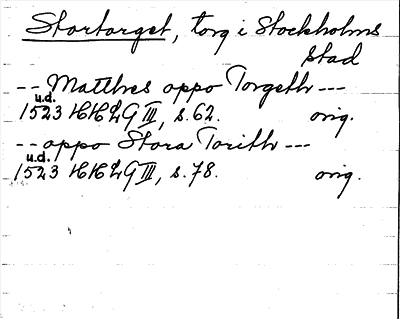 Stortorget, torg i Stockholms
stad
-- Matthes oppo Torgeth ---
u.d.
1523 HHLG III, s.62. orig.
-- oppo Stora Torith ---
u.d.
1523 HHLG III, s.78. orig.